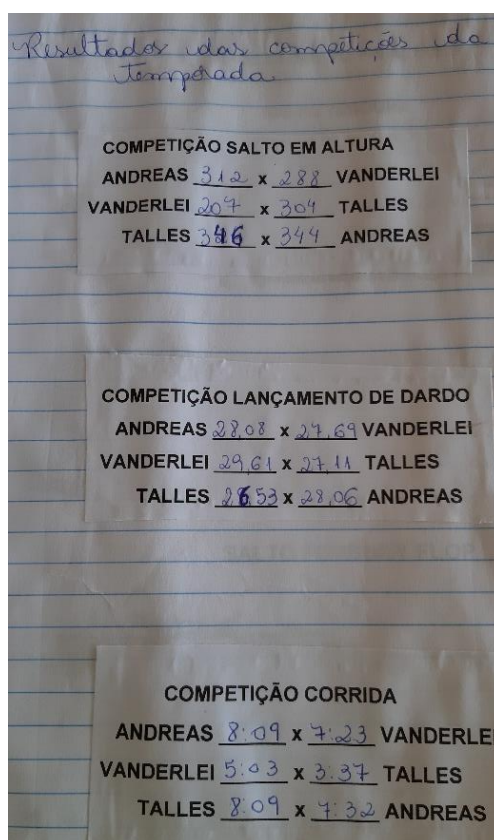 Resultados das competições da
temporada
COMPETIÇÃO SALTO EM ALTURA
ANDREAS 312 x 288 VANDERLEI
VANDERLEI 207 x 304 TALLES
TALLES 346 x 344 ANDREAS
COMPETIÇÃO LANÇAMENTO DE DARDO
ANDREAS 28,08 x 27,69 VANDERLEI
VANDERLEI 29,61 x 27,11 TALLES
TALLES 26,53 x 28,06 ANDREAS
COMPETIÇÃO CORRIDA
ANDREAS 8:09 x 7:23 VANDERLE
VANDERLEI 5:03 x 3:37 TALLES
TALLES 8:09 x 7:32 ANDREAS